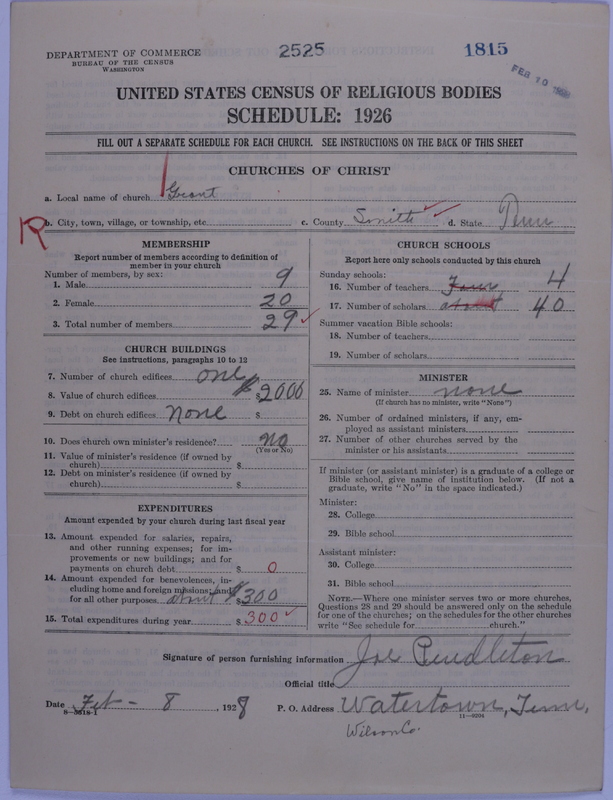 DEPARTMENT OF COMMERCE
BUREAU OF THE CENSUS
WASHINGTON
2525
1815
FEB 10
UNITED STATES CENSUS OF RELIGIOUS BODIES
SCHEDULE: 1926
FILL OUT A SEPARATE SCHEDULE FOR EACH CHURCH. SEE INSTRUCTIONS ON THE BACK OF THIS SHEET
CHURCHES OF CHRIST
a. Local name of church Grant
R
b. City, town, village, or township, etc. c. County Smith d. State Tenn
MEMBERSHIP
Report number of members according to definition of
member in your church
Number of members, by sex:
1. Male 9
2. Female 20
3. Total number of members 29
CHURCH BUILDINGS
See instructions, paragraphs 10 to 12
7. Number of church edifices one
8. Value of church edifices $2000
9. Debt on church edifices none $
10. Does church own minister's residence? no
(Yes or No)
11. Value of minister's residence (if owned by
church) $
12. Debt on minister's residence (if owned by
church) $
EXPENDITURES
Amount expended by your church during last fiscal year
13. Amount expended for salaries, repairs,
and other running expenses; for im-
provements or new buildings; and for
payments on church debt $ 0
14. Amount expended for benevolences, in-
cluding home and foreign missions; and
for all other purposes about $300
15. Total expenditures during year $ 300
CHURCH SCHOOLS
Report here only schools conducted by this church
Sunday schools:
16. Number of teachers Four 4
17. Number of scholars about 40
Summer vacation Bible schools:
18. Number of teachers
19. Number of scholars
MINISTER
25. Name of minister none
(If church has no minister, write "None")
26. Number of ordained ministers, if any, em-
ployed as assistant ministers
27. Number of other churches served by the
minister or his assistants
If minister (or assistant minister) is a graduate of a college or
Bible school, give name of institution below. (If not a
graduate, write "No" in the space indicated.)
Minister:
28. College
29. Bible school
Assistant minister:
30. College
31. Bible school
NOTE.—Where one minister serves two or more churches,
Questions 28 and 29 should be answered only on the schedule
for one of the churches; on the schedules for the other churches
write "See schedule for church."
Signature of person furnishing information Joe Pendleton
Official title
Date Feb - 8, 1928 P. O. Address Watertown, Tenn,
8—5518-1
11—9204
Wilson Co.